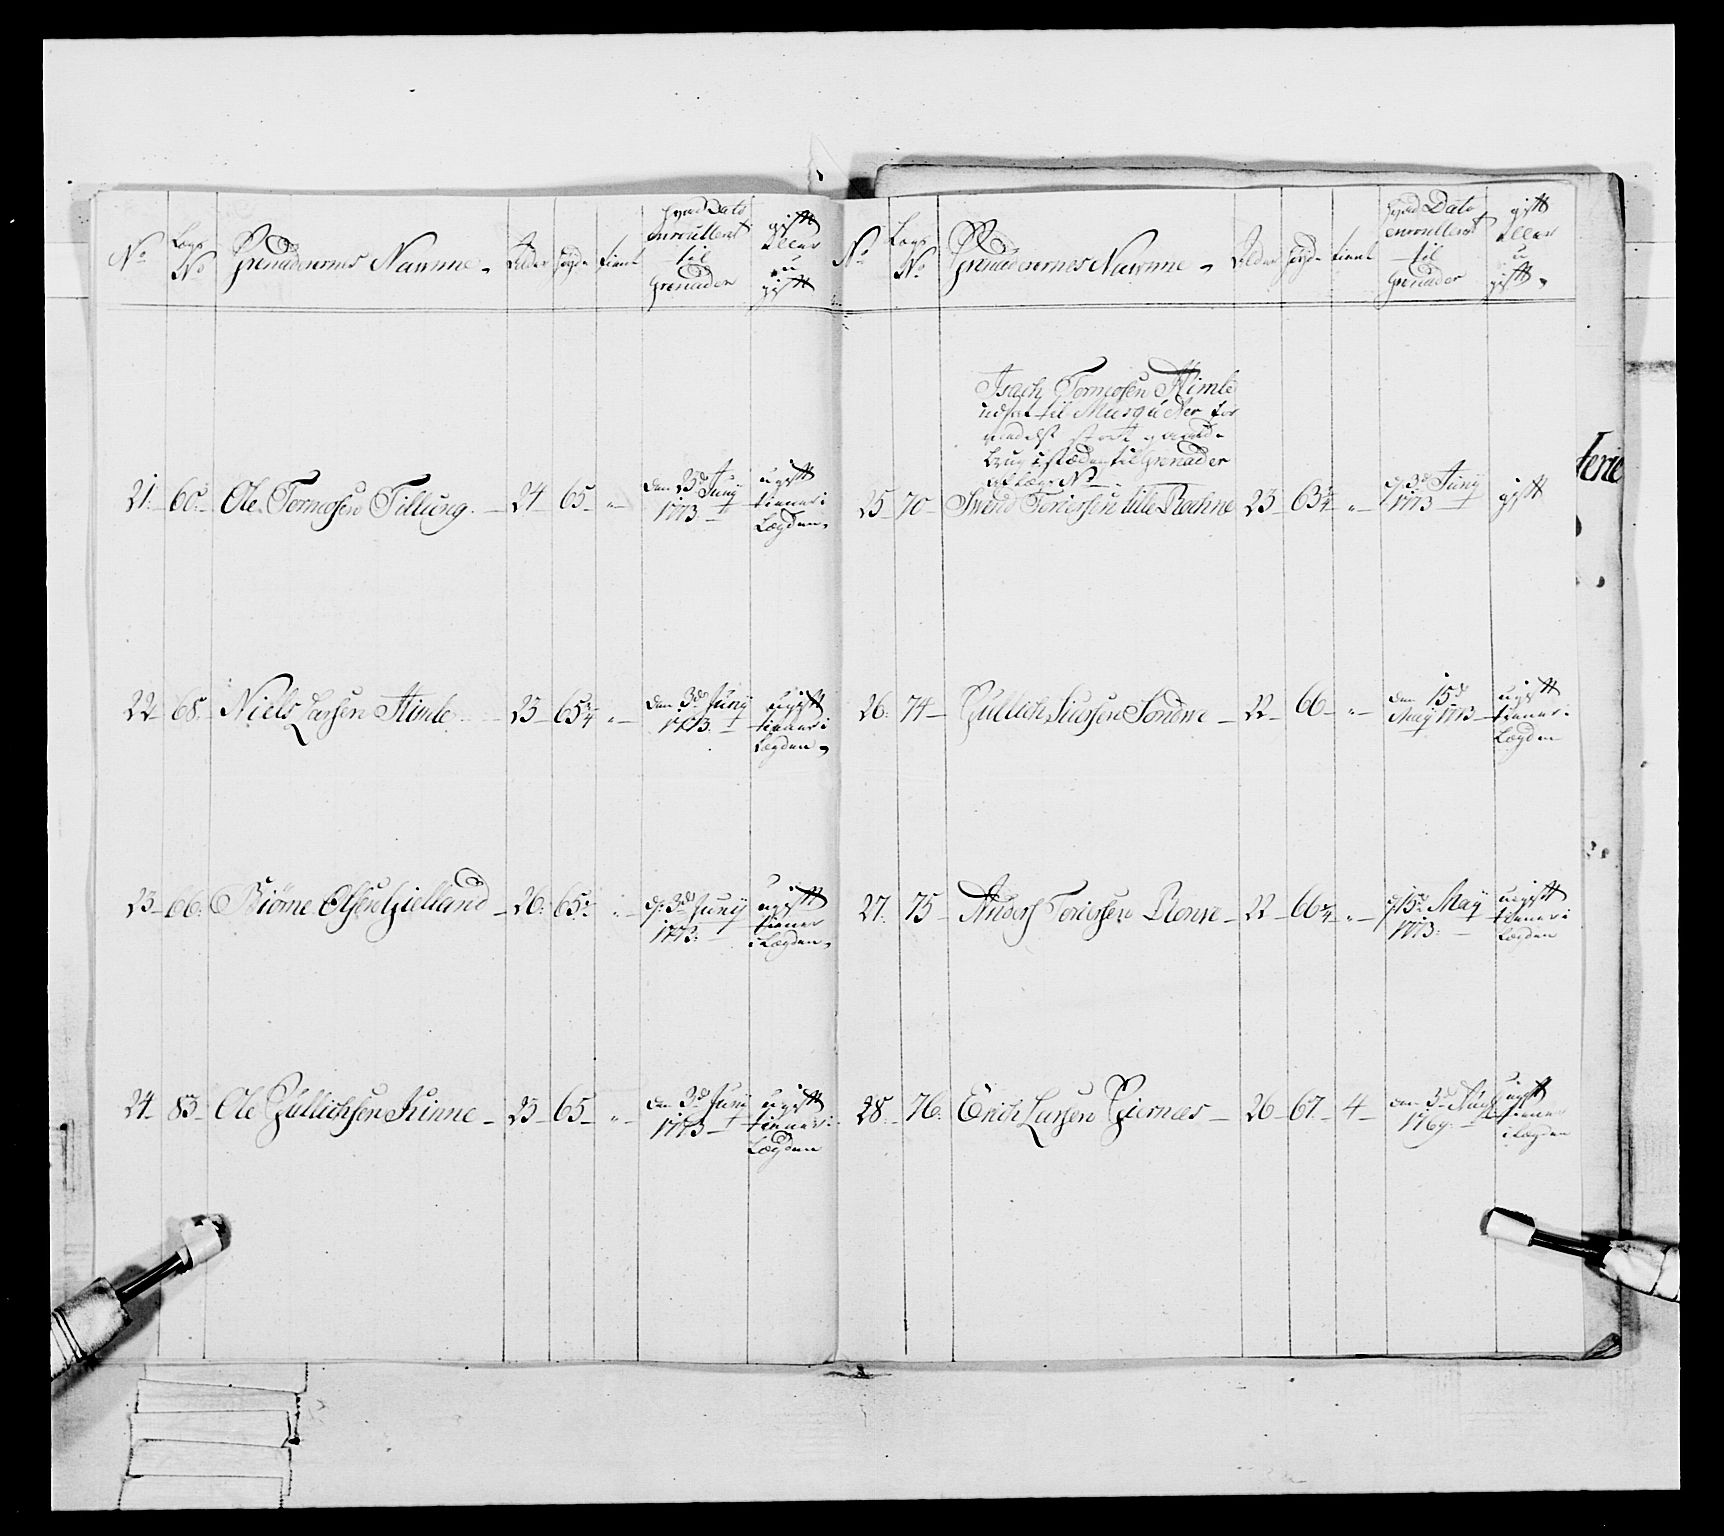 No
Lægs No
Grenaderernes Nawnne
Alder
høyde
tient
hvad Dato enroulleret til Grenader
gift eller u gift
21. 60. Ole Tormosen Tillung. 24 65 den 23de Juny 1773 ugift tienner i Lægden.
22 68. Niels Larsen Himle 23 65 3/4 den 3de Juny 1773. ugift tienner i Lægden
23 66. Biørne Olsen Gielland 26. 65 d: 3de Juny 1773. ugift tienner i Lægden.
24 83 Ole Gullichsen Kinne 23 65 den 3de Juny 1773 ugift tienner i Lægden
No
Lægs No
Grenaderernes Nawnne
Alder
høyde
tient
hvad Dato enroullerét til Grenader
gift eller u gift
Isach Tormosen Himle
udsat til Musqueter for
medelst
brug i stæden til Grenader
af læg No
25 70 Swend Toriersen lille Rechne 23 63 3/4 d. 3de Juny 1773 gift
26. 74 Gullich Siursen Sondwe 22 66 den 15de May 1773 ugift tienner i Lægden
27. 75 Anders Toriersen Ronne 22 66 3/4 d. 15de May 1773. ugift tienner i Lægden
28. 76. Erich Larsen Giernæs 26 67. 4 den 3de 1769. ugift tienner i Lægden